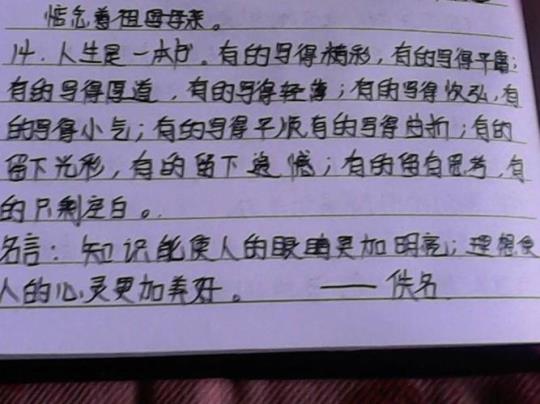 惦念着祖国母亲。
14.人生是一本书。有的写得精彩,有的写得平庸;
有的写得厚道,有的写得轻薄;有的写得恢弘,有
的写得小气;有的写得平顺有的写得曲折;有的
留下光彩,有的留下遗憾;有的留有思考,有
的只剩空白。
名言:知识能使人的眼睛更加明亮;理想使
人的心灵更加美好。 ——佚名